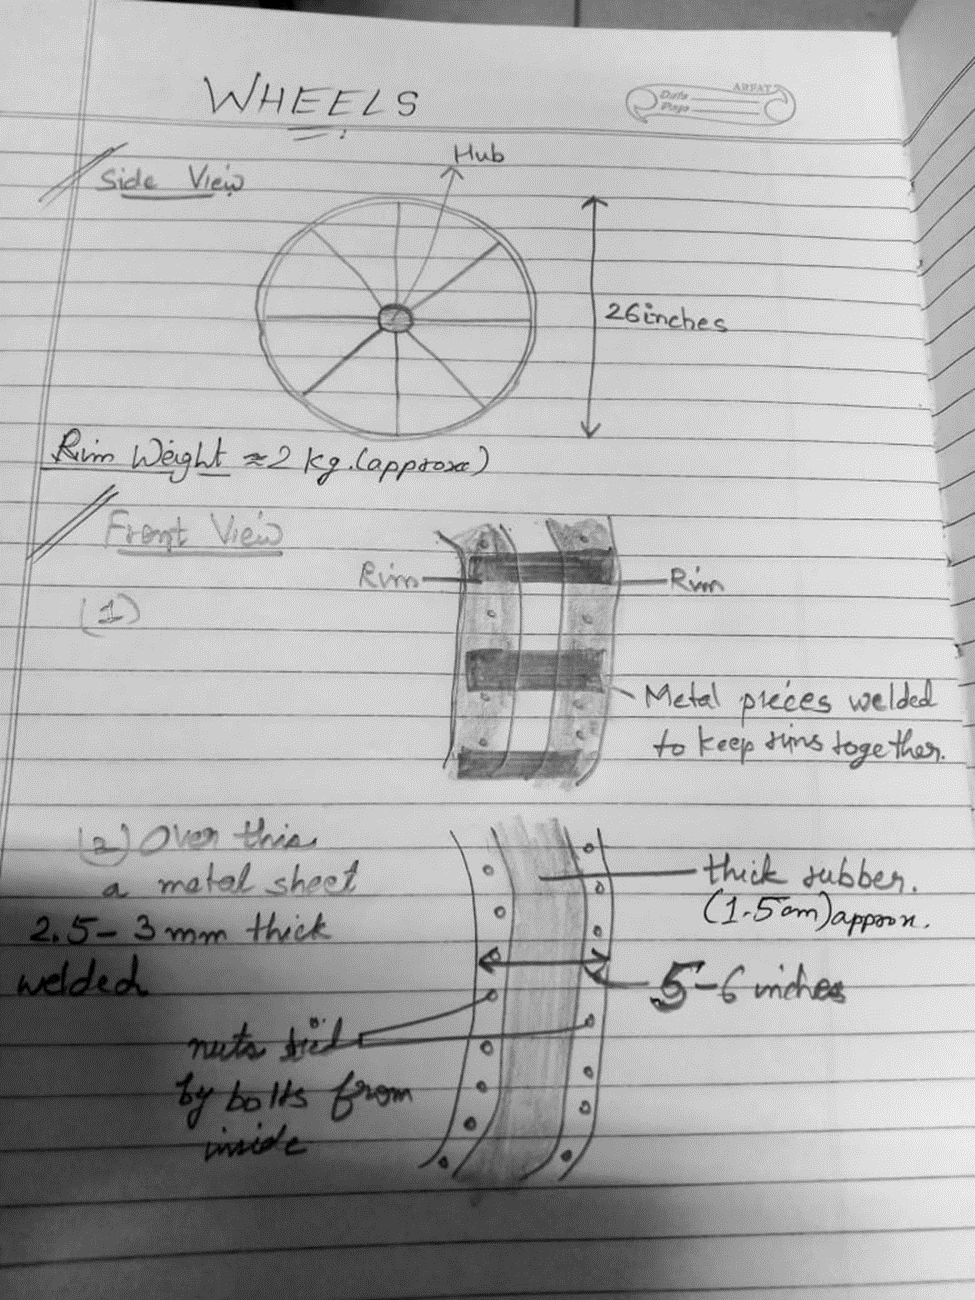 WHEELS
ARFAT
Date
Page
Side View
Hub
26inches
Rim Weight ≈2 kg.(approx)
Front View
Rim
Rim
(1)
Metal pieces welded
to keep rims together.
(2) Over this
a metal sheet
2.5-3mm thick
welded
thick rubber.
(1.5cm)approx.
5-6 inches
nuts tied
by bolts from
inside